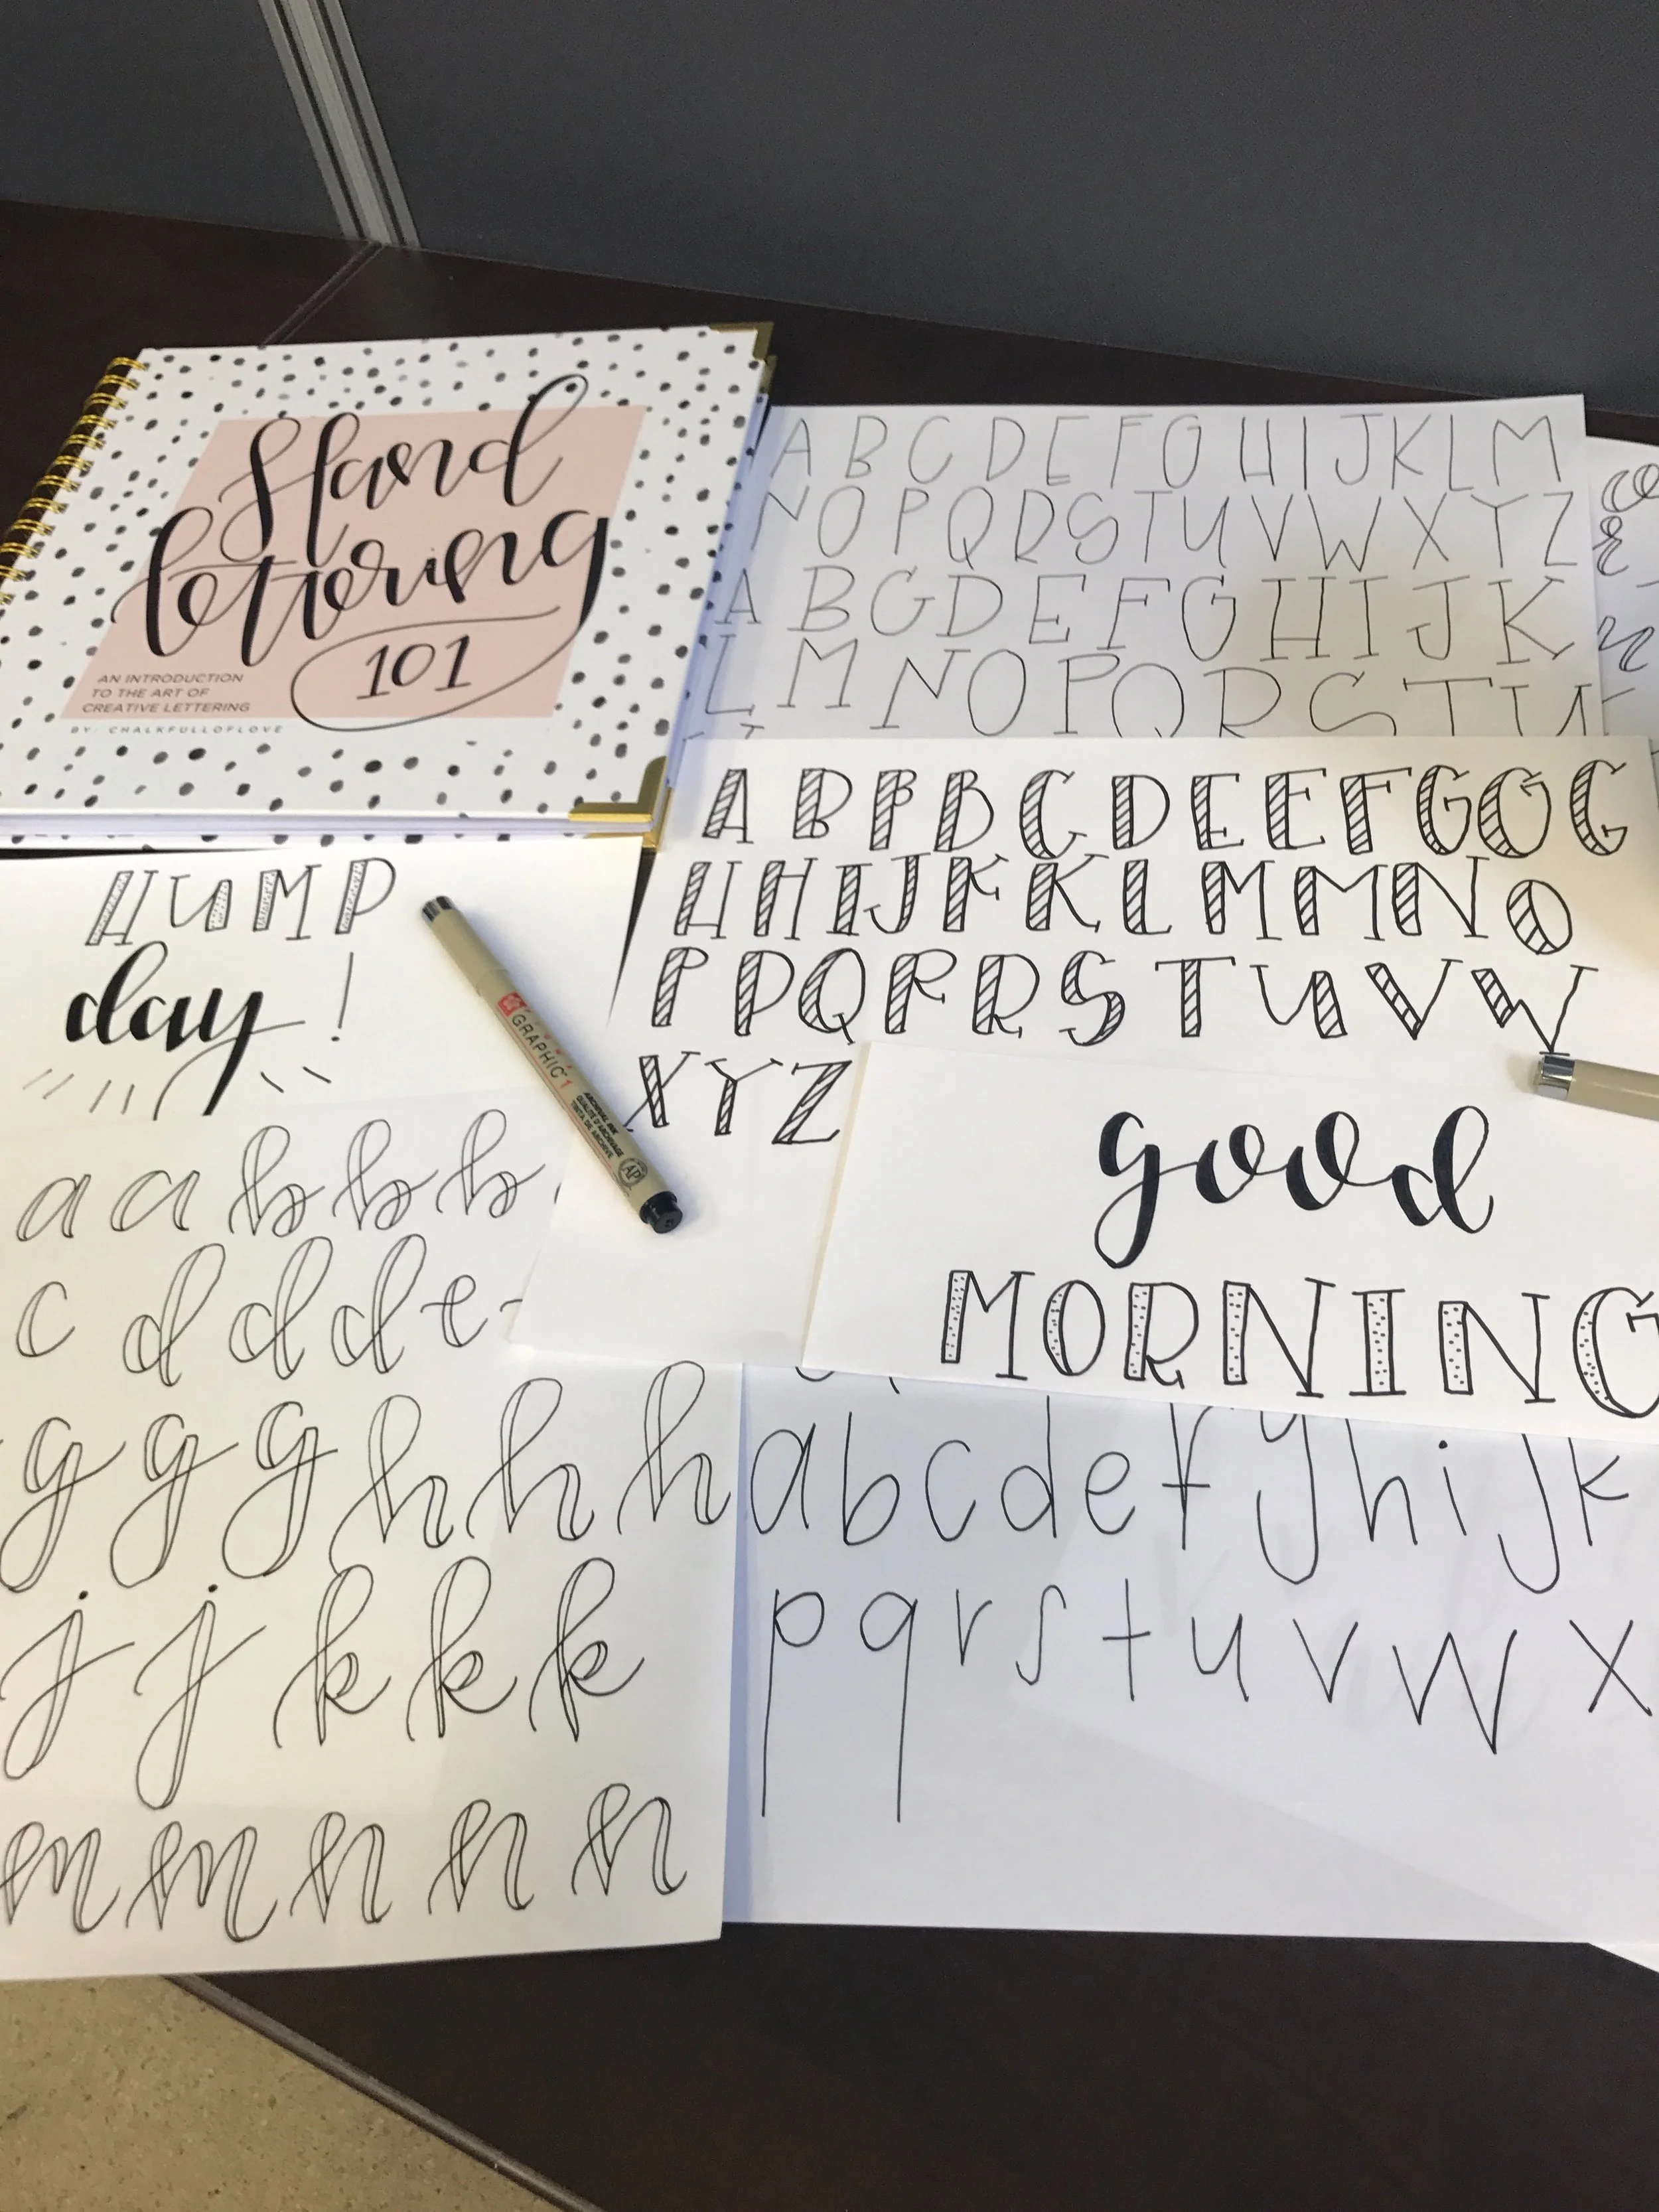 Hand
lettering
101
AN INTRODUCTION
TO THE ART OF
CREATIVE LETTERING
BY: CHALKFULLOFLOVE
A B C D E F G H I J K L M
N O P Q R S T U V W X Y Z
A B C D E F G H I J K
L M N O P Q R S T U
A B B B C D E E F G G G
H H I J K K L M M N O
P P Q R R S T U V W
X Y Z
HUMP
day!
GRAPHIC 1
ARCHIVAL INK
QUALITÉ D'ARCHIVAGE
TINTA DE ARCHIVE
AP
good
MORNING
a a b b b
c d d d e
g g g h h h
j j k k k
m m n n n
a b c d e f g h i j k
p q r s t u v w x